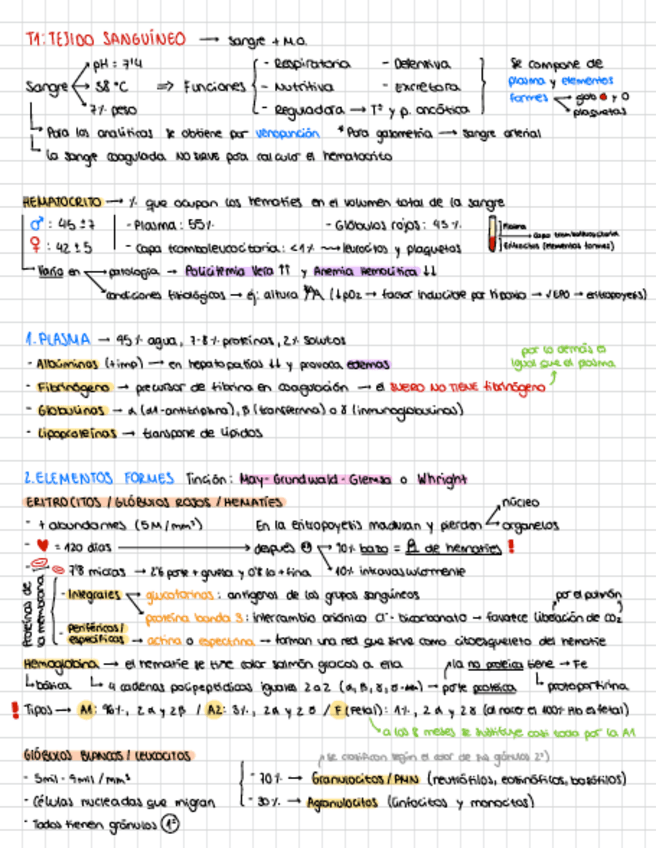 T1: TEJIDO SANGUÍNEO → Sangre + M.O.
Sangre
pH = 7'4
38 °C
7% peso
⇒ Funciones
- Respiratoria
- Nutritiva
- Reguladora → Tª y p. oncótica
- Defensiva
- Excretora
Se compone de
plasma y elementos
formes
glob y O
plaquetas
Para las analíticas se obtiene por venopunción * Para gasometría → sangre arterial
La sangre coagulada NO SIRVE para calcular el hematocrito
HEMATOCRITO → % que ocupan los hematíes en el volumen total de la sangre
♂ : 45 ± 7
♀ : 42 ± 5
- Plasma: 55% - Glóbulos rojos: 45%
- Capa tromboleucocitaria: <1% → leucocitos y plaquetas
Plasma
Capa tromboleucocitaria
Eritrocitos (elementos formes)
Varía en
patología → Policitemia Vera ↑↑ y Anemia Hemolítica ↓↓
condiciones fisiológicas → ej: altura (↓pO2 → factor inducible por hipoxia → √EPO → eritropoyesis)
1. PLASMA → 95% agua, 7-8% proteínas, 2% solutos
- Albúminas (+imp) → en hepatopatías ↓↓ y provoca edemas
- Fibrinógeno → precursor de fibrina en coagulación → el SUERO NO TIENE fibrinógeno
por lo demás es
igual que el plasma
- Globulinas → α (α1-antitripsina), β (transferrina) o γ (inmunoglobulinas)
- Lipoproteínas → transporte de lípidos
2. ELEMENTOS FORMES Tinción: May-Grundwald-Giemsa o Whright
ERITROCITOS / GLÓBULOS ROJOS / HEMATÍES
- + abundantes (5M/mm³) En la eritropoyesis maduran y pierden
núcleo
organelos
- ♥ = 120 días → después
90% bazo = de hematíes !
10% intravascularmente
- 7'8 micras → 2'6 parte + gruesa y 0'8 la + fina
Proteínas de
la membrana
- Integrales
glucoforinas: antígenos de los grupos sanguíneos
proteína banda 3: intercambio aniónico Cl⁻ bicarbonato → favorece liberación de CO2
por el pulmón
- Periféricas/
específicas → actina o espectrina → forman una red que sirve como citoesqueleto del hematíe
Hemoglobina → el hematíe se tiñe color salmón gracias a ella
↳ básica ↳ 4 cadenas polipeptídicas iguales 2 a 2 → parte proteica
la no proteica tiene → Fe
↳ protoporfirina
! Tipos → A1: 96%, 2α y 2β / A2: 3%, 2α y 2δ / F (Fetal): 1%, 2α y 2γ (al nacer el 100% Hb es fetal)
a los 8 meses se sustituye casi toda por la A1
GLÓBULOS BLANCOS / LEUCOCITOS
- 5mil - 9mil / mm³
- Células nucleadas que migran
- Todos tienen gránulos 1º
se clasifican según el color de sus gránulos 2º)
- 70% → Granulocitos / PMN (neutrófilos, eosinófilos, basófilos)
- 30% → Agranulocitos (linfocitos y monocitos)